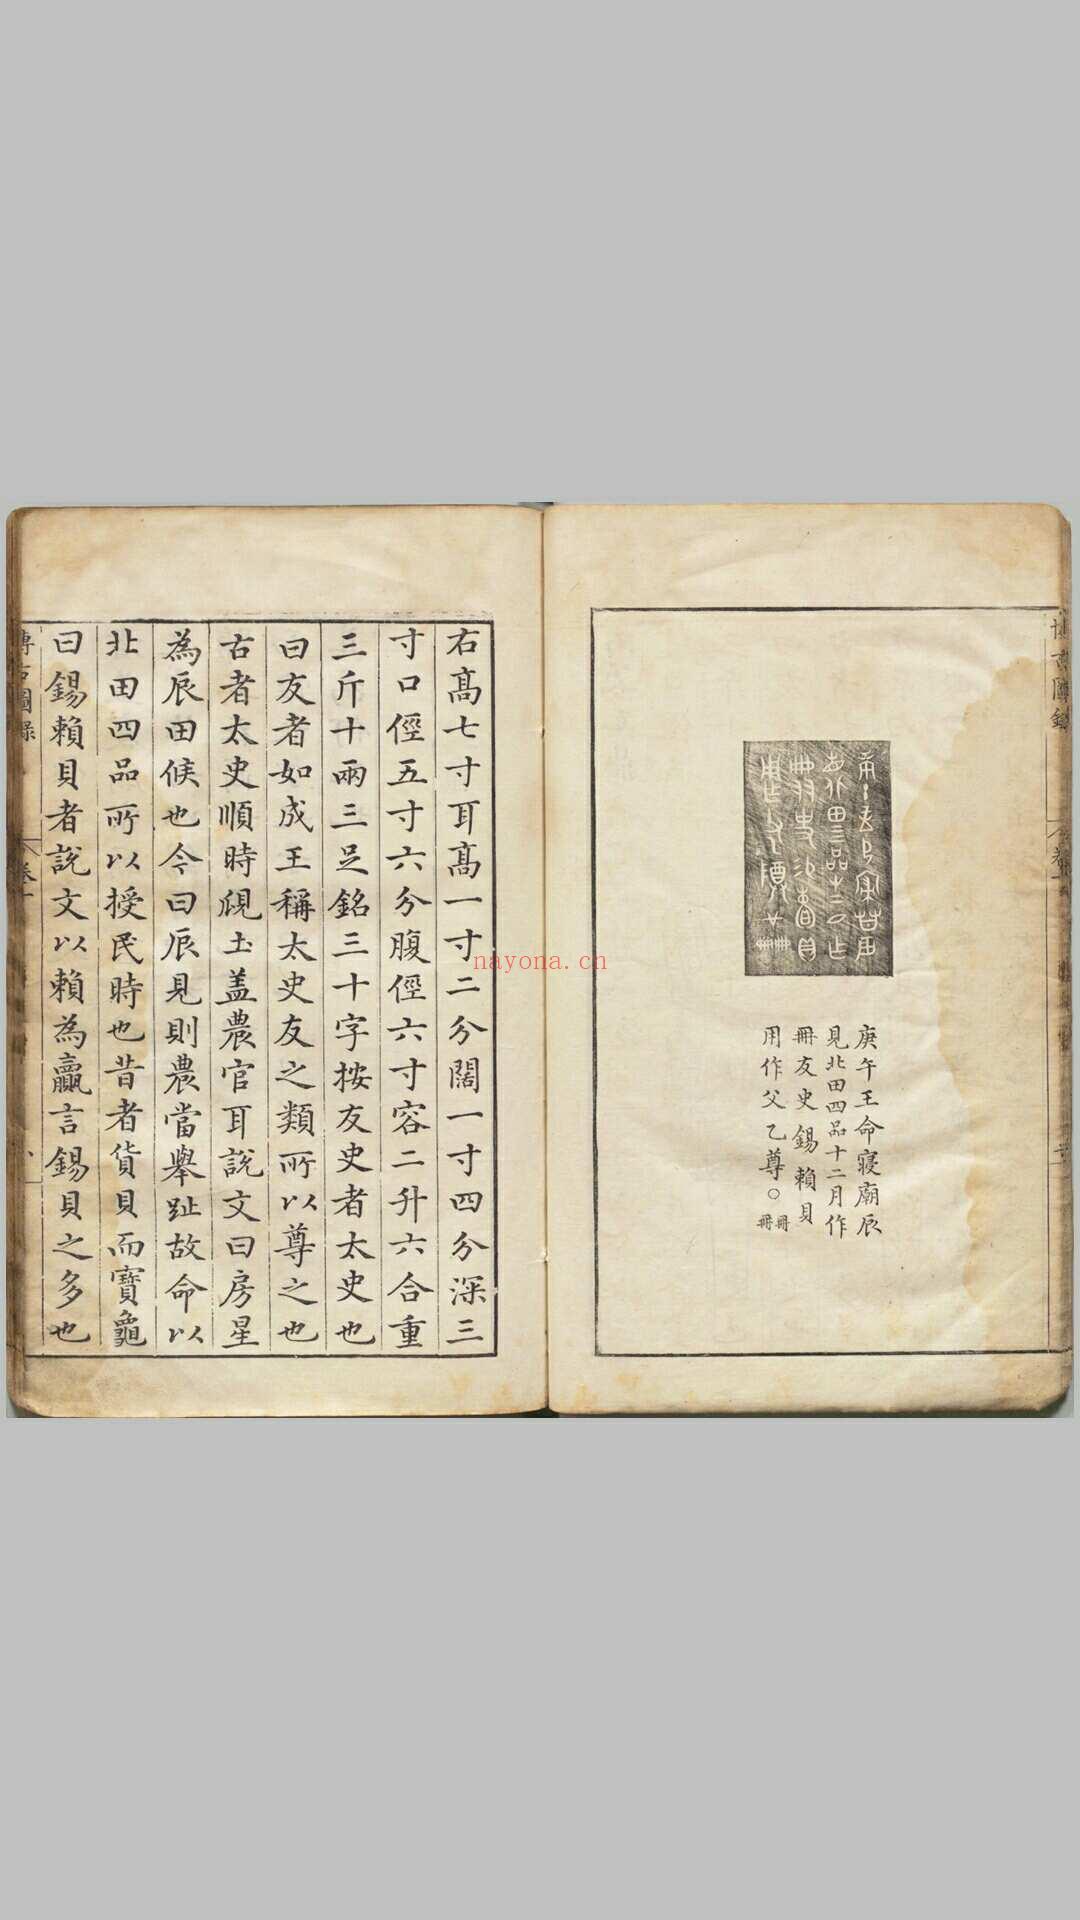 庚午王命寢廟辰
見北田四品十二月作
冊友史錫賴貝
用作父乙尊○冊冊
右高七寸耳高一寸二分闊一寸四分深三
寸口徑五寸六分腹徑六寸容二升六合重
三斤十兩三足銘三十字按友史者太史也
曰友者如成王稱太史友之類所以尊之也
古者太史順時覛土蓋農官耳說文曰房星
為辰田候也今曰辰見則農當舉趾故命以
北田四品所以授民時也昔者貨貝而寶龜
曰錫賴貝者說文以賴為贏言錫貝之多也
博古圖錄
nayona.cn